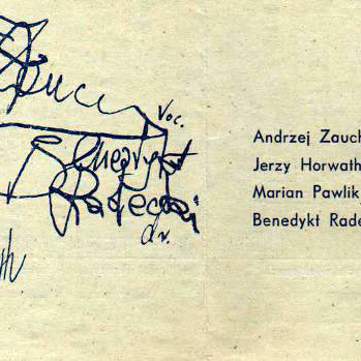 Zauch
voc.
Benedykt
Radecki
dr.
Andrzej Zauch
Jerzy Horwath
Marian Pawlik
Benedykt Rade